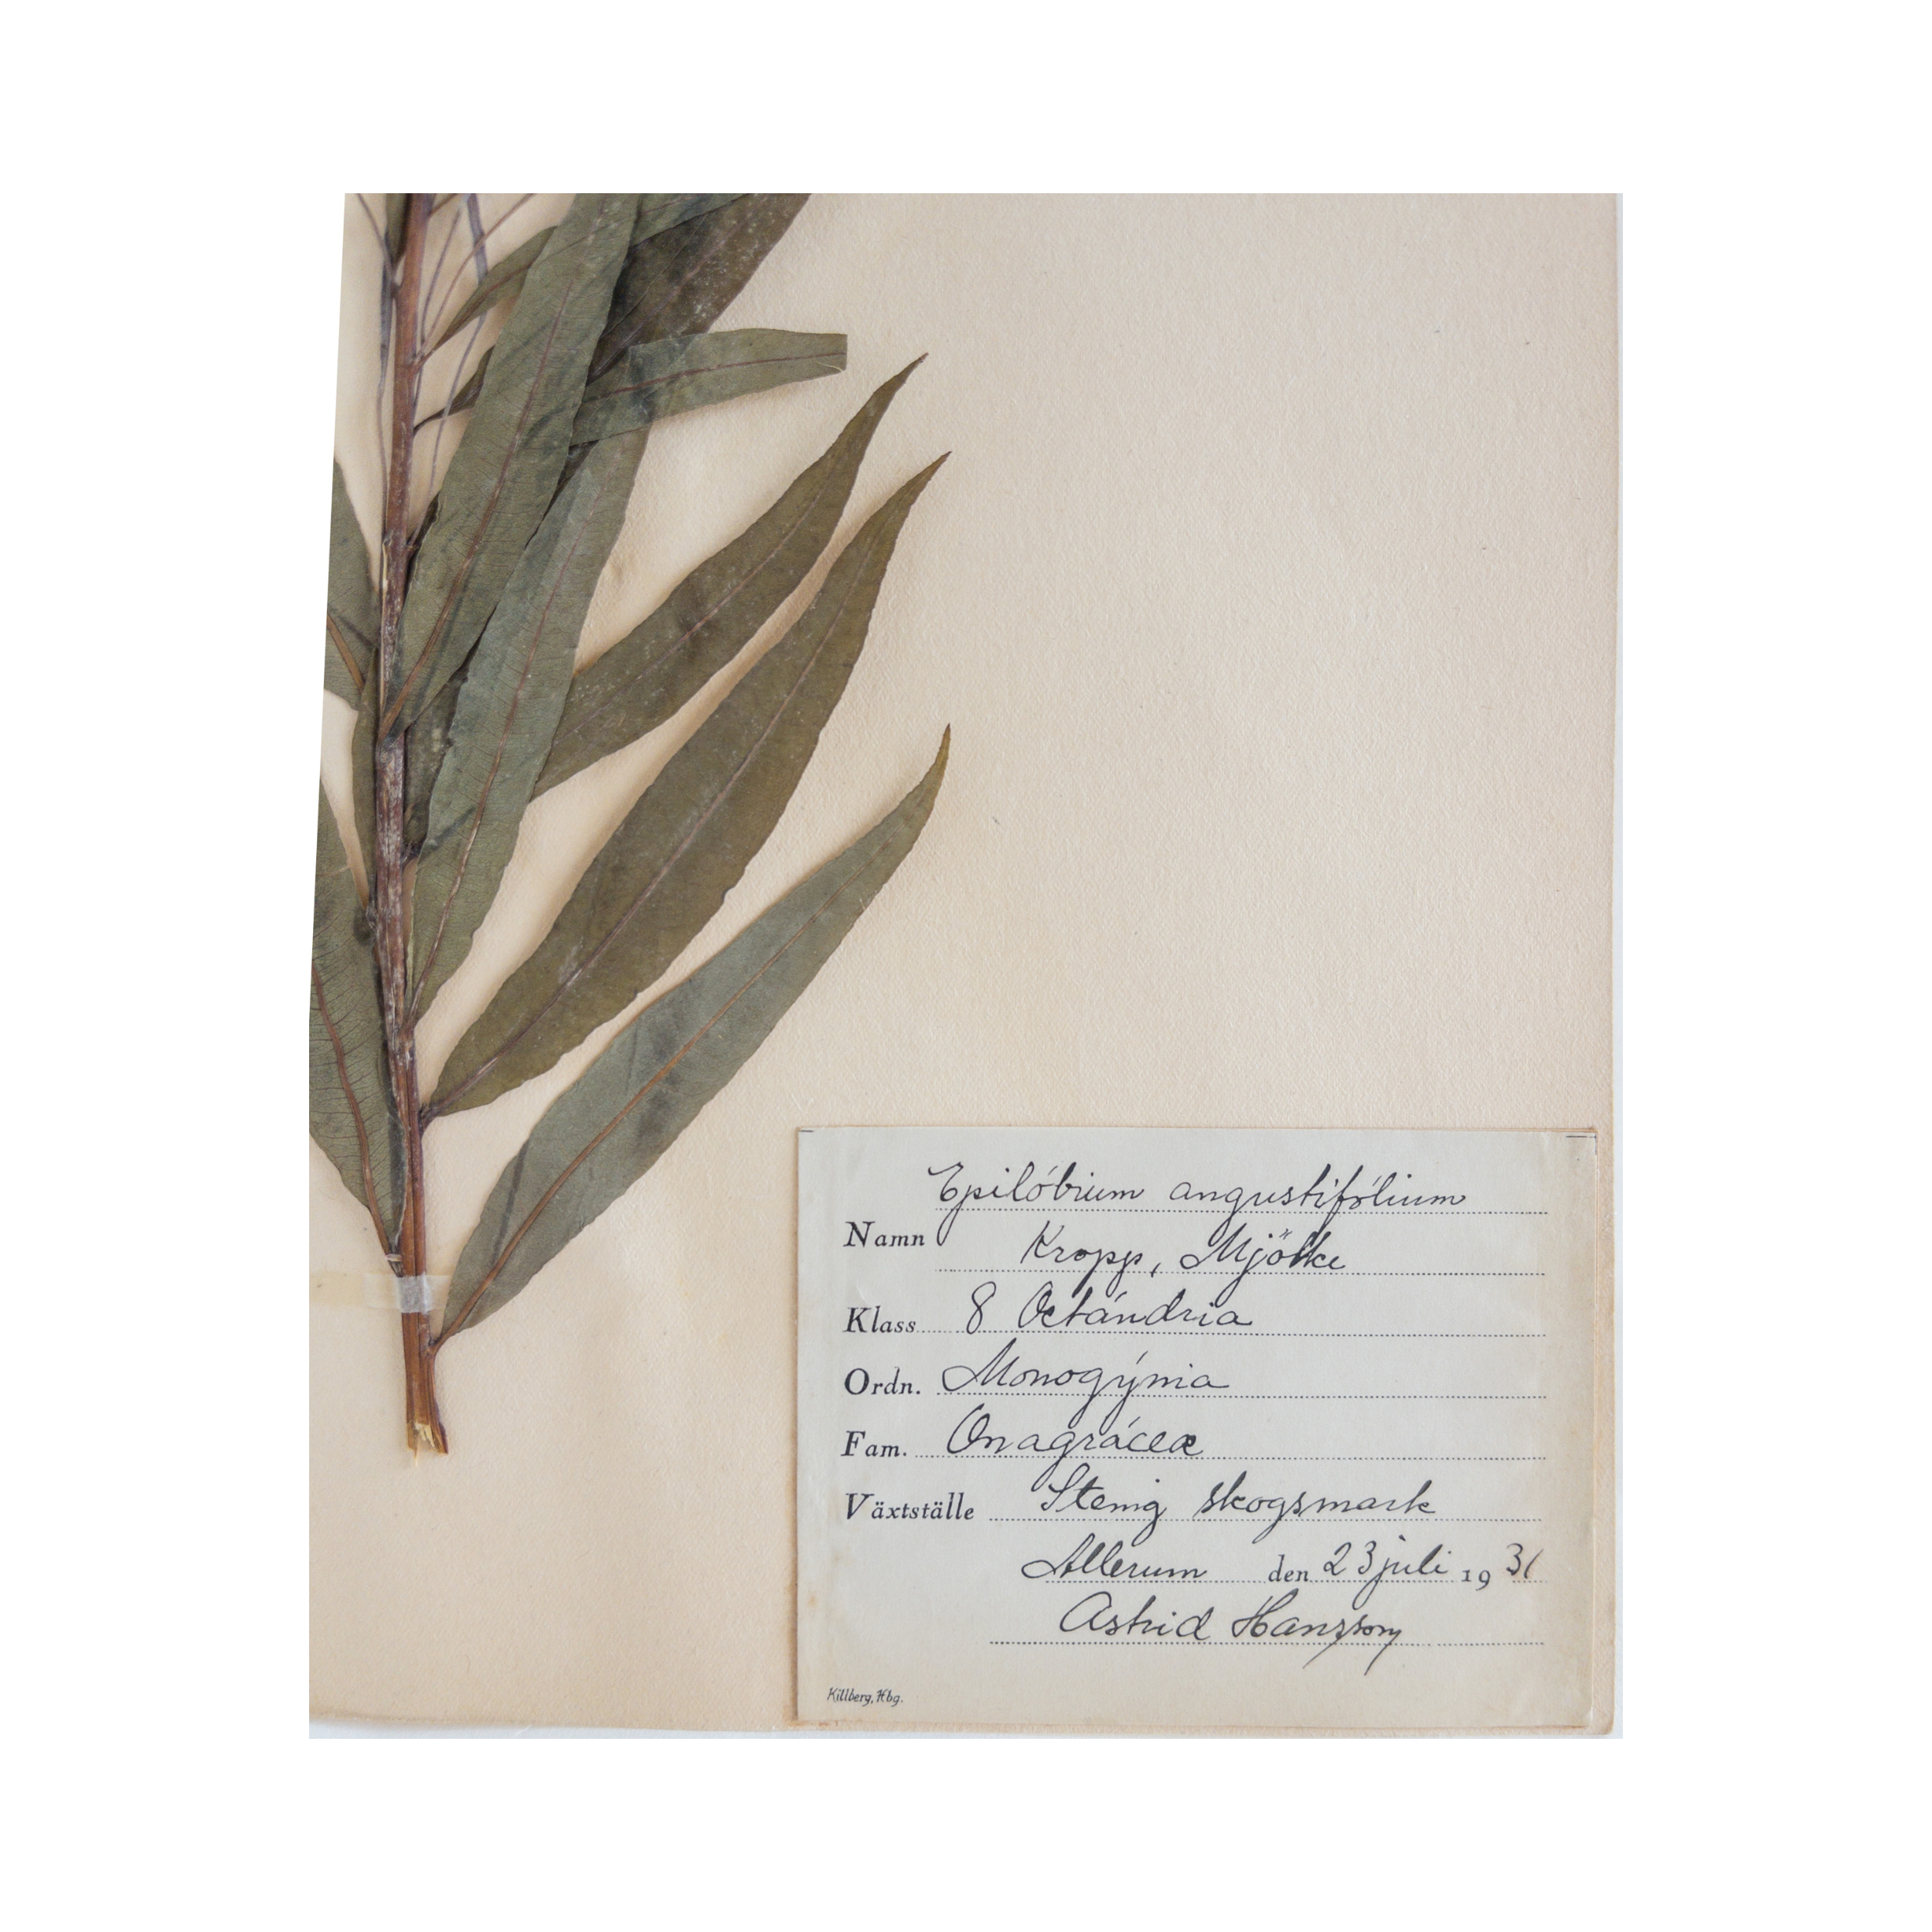 Epilóbium angustifólium
Namn Kropp, Mjölke
Klass 8 Octándria
Ordn. Monogýnia
Fam. Onagráceæ
Växtställe Stenig skogsmark
Allerum den 23 juli 1931
Astrid Hansson
Killberg, Hbg.